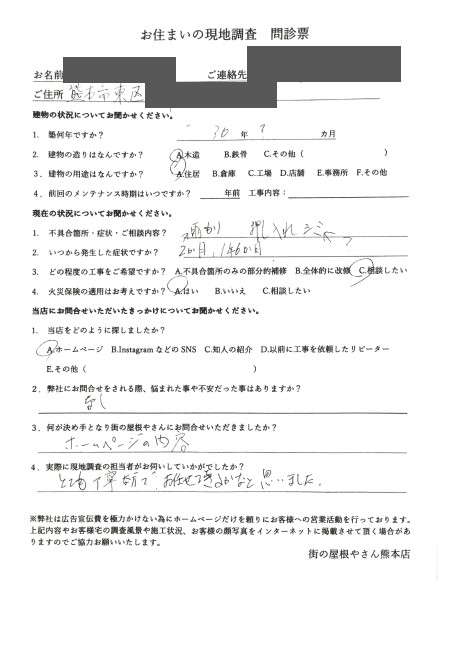 お住まいの現地調査 問診票
お名前
ご連絡先
ご住所 熊本市東区
建物の状況についてお聞かせください。
1. 築何年ですか? 30 年 ? カ月
2. 建物の造りはなんですか? A.木造 B.鉄骨 C.その他( )
3. 建物の用途はなんですか? A.住居 B.倉庫 C.工場 D.店舗 E.事務所 F.その他
4. 前回のメンテナンス時期はいつですか? 年前 工事内容:
現在の状況についてお聞かせください。
1. 不具合箇所・症状・ご相談内容? 雨もり 押し入れシミ
2. いつから発生した症状ですか? 2か月,1年6か月
3. どの程度の工事をご希望ですか? A.不具合箇所のみの部分的補修 B.全体的に改修 C.相談したい
4. 火災保険の適用はお考えですか? A.はい B.いいえ C.相談したい
当店にお問合せいただいたきっかけについてお聞かせください。
1. 当店をどのように探しましたか?
A.ホームページ B.InstagramなどのSNS C.知人の紹介 D.以前に工事を依頼したリピーター
E.その他( )
2. 弊社にお問合せをされる際、悩まれた事や不安だった事はありますか?
なし
3. 何が決め手となり街の屋根やさんにお問合せいただきましたか?
ホームページの内容
4. 実際に現地調査の担当者がお伺いしていかがでしたか?
とても丁寧な方で お任せできるかなと思いました。
※弊社は広告宣伝費を極力かけない為にホームページだけを頼りにお客様への営業活動を行っております。
上記内容やお客様宅の調査風景や施工状況、お客様の顔写真をインターネットに掲載させて頂く場合があ
りますのでご協力お願いいたします。
街の屋根やさん熊本店